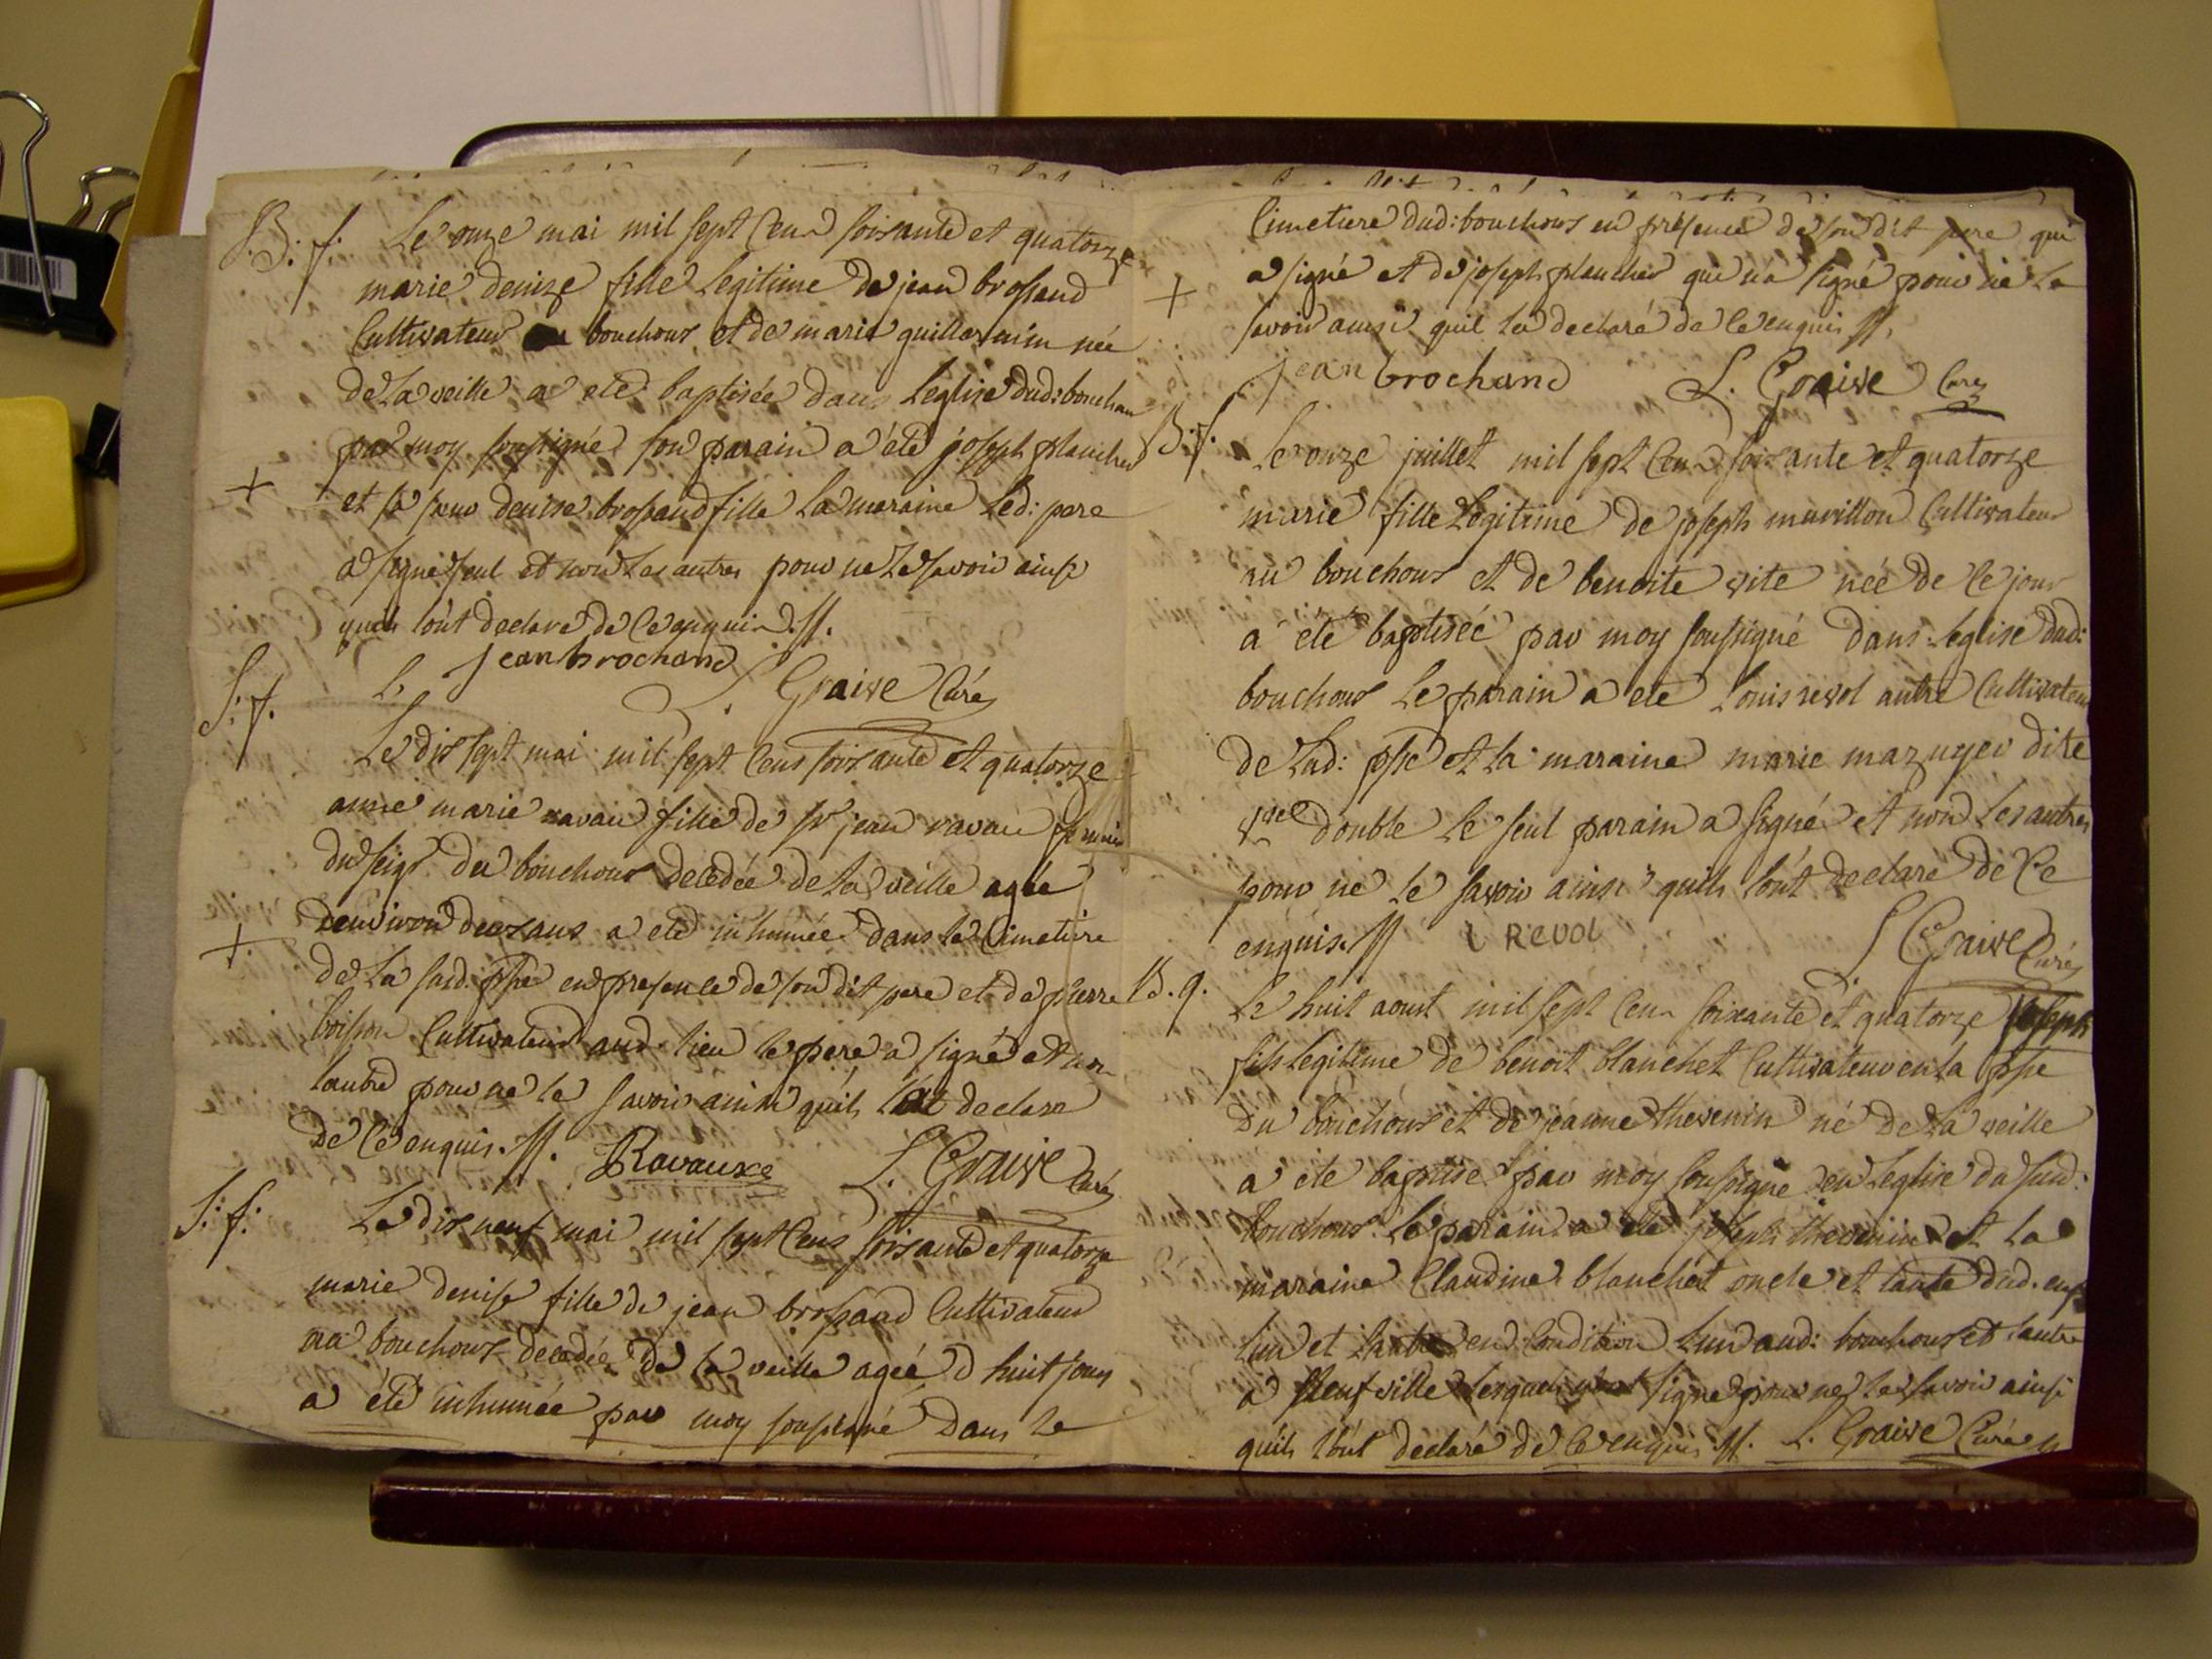 B. f. Le onze mai mil sept cens soixante et quatorze
marie denize fille legitime de jean brossand
Cultivateur au bouchous et de marie guillermin née
de la veille a eté baptisée dans Leglise dud: bouchou
par moy soussigné son parain a été joseph planchet
+ et sa seur denise brossand fille La maraine Led: pere
a signé seul et non les autres pour ne Le savoir ainsi
quils lont declaré de ce enquis.//.
jean brochand L. Graive Curé
S. f. Le dix sept mai mil sept cens soixante et quatorze
anne marie ravau fille de sr jean ravau
du seigr du bouchous decedée de la veille agée
denviron deux ans a eté inhumée dans le Cimetiere
+ de La susd. psse en presence de son dit pere et de pierre
boisson Cultivateur aud. lieu le pere a signé et non
lautre pour ne le savoir ainsi quil lat declaré
de ce enquis.//. Ravauxe L. Graive Curé
S. f. Le dix neuf mai mil sept cens soixante et quatorze
marie denise fille de jean brossand Cultivateur
au bouchous decedée de la veille ageé d huit jours
a été inhumée par moy soussigné dans le
Cimetiere dud: bouchous en présence de son dit pere qui
+ a signé et de joseph planchet qui na signé pour ne le
savoir ainsi quil la declaré de ce enquis //.
jean brochand L. Graive Curé
B. f. Le onze juillet mil sept cens soixante et quatorze
marie fille Legitime de joseph muvillon Cultivateur
au bouchous et de benoite vite neé de ce jour
a été baptiseé par moy soussigné dans leglise dud:
bouchous Le parain a eté Louis revol autre Cultivateur
de Lad: psse et la maraine marie mazuyer dite
double le seul parain a signé et non les autres
pour ne le savoir ainsi quils lont declaré de ce
enquis.// L REVOL L Graive Curé
B. g. Le huit aoust mil sept cens soixante et quatorze joseph
fils legitime de benoit blanchet Cultivateur en la psse
du bouchous et de jeanne thevenin né de la veille
a eté baptisé par moy soussigné en Leglise du susd:
bouchous. Le parain a eté joseph thevenin et la
maraine Claudine blanchet oncle et tante dud. enf
lun et lautre en Condition Lun aud: bouchous et lautre
a Neufville lesquels nont signé pour ne le savoir ainsi
quils lont declaré de ce enquis.//. L. Graive Curé